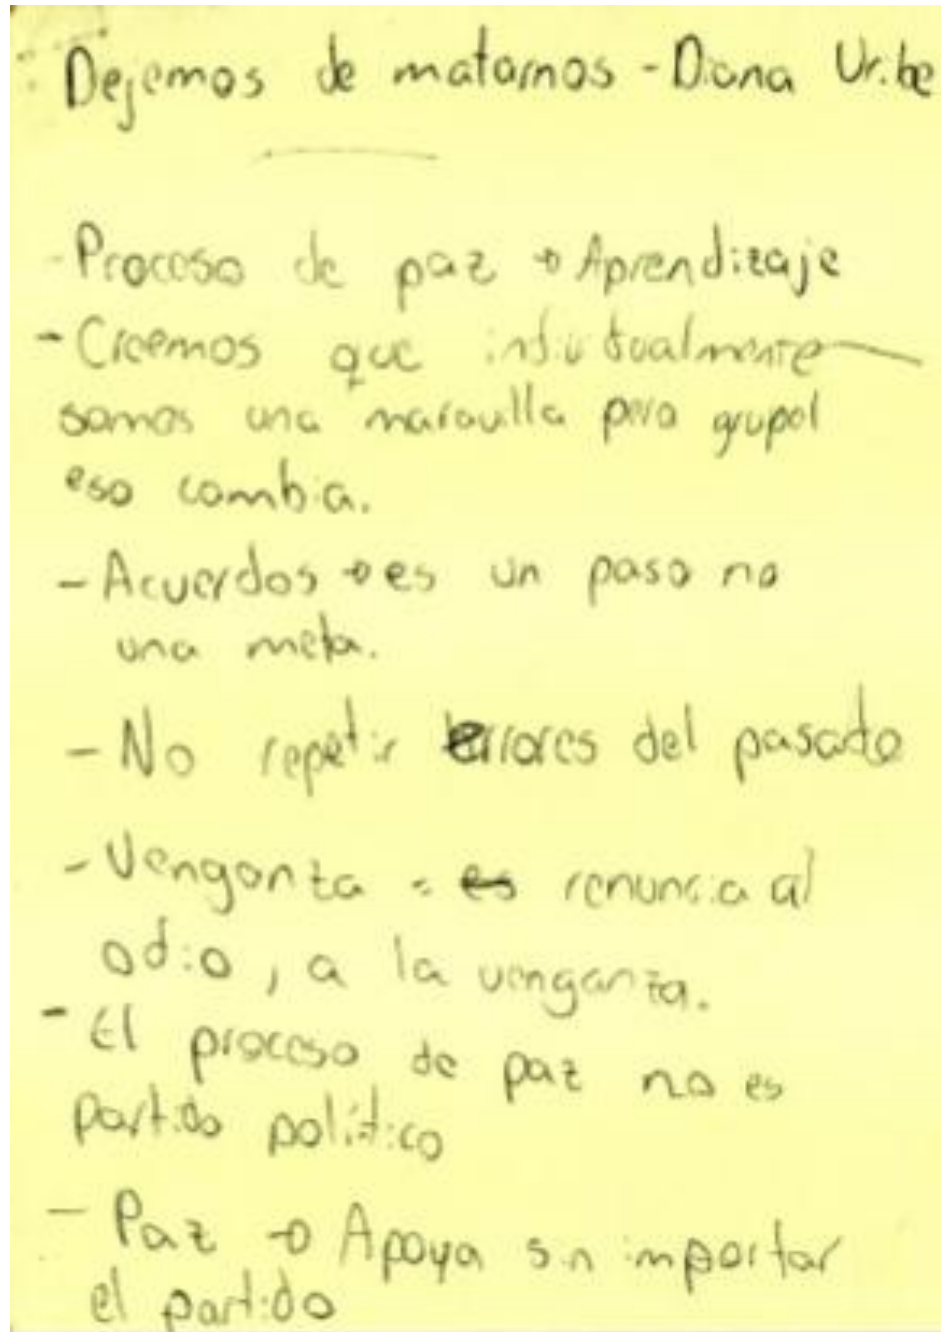 Dejemos de matarnos - Diana Uribe
- Proceso de paz → Aprendizaje
- Creemos que individualmente
somos una maravilla pero grupal
eso cambia.
- Acuerdos → es un paso no
una meta.
- No repetir errores del pasado
- Venganza = es renuncia al
odio, a la venganza.
- El proceso de paz no es
partido político
- Paz → Apoya sin importar
el partido